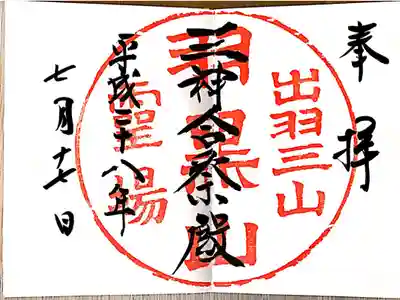 奉拝
出羽三山
羽黒山
三神合祭殿
霊場
平成二十八年
七月十七日